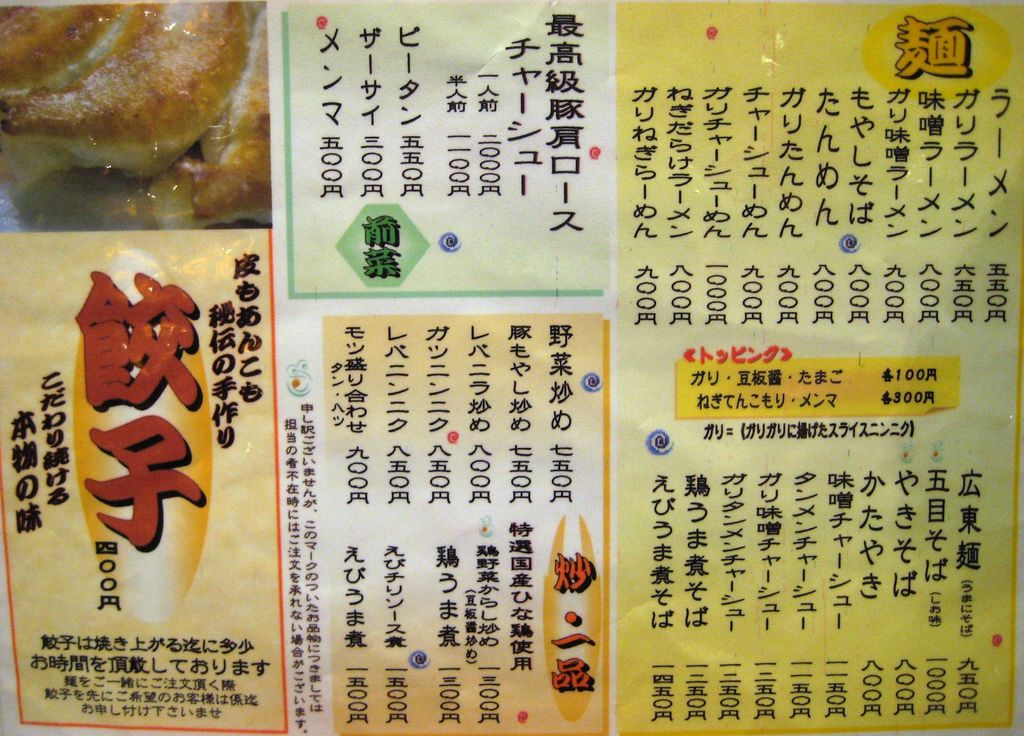 麺
ラーメン 五五〇円
ガリラーメン 六五〇円
味噌ラーメン 八〇〇円
ガリ味噌ラーメン 九〇〇円
もやしそば 八〇〇円
たんめん 八〇〇円
ガリたんめん 九〇〇円
チャーシューめん 九〇〇円
ガリチャーシューめん 一〇〇〇円
ねぎだらけラーメン 八〇〇円
ガリねぎらーめん 九〇〇円
《トッピング》
ガリ・豆板醤・たまご 各100円
ねぎてんこもり・メンマ 各300円
ガリ=(ガリガリに揚げたスライスニンニク)
広東麺(うまにそば) 九五〇円
五目そば(しお味) 一〇〇〇円
やきそば 八〇〇円
かたやき 八〇〇円
味噌チャーシュー 一一五〇円
タンメンチャーシュー 一一五〇円
ガリ味噌チャーシュー 一二五〇円
ガリタンメンチャーシュー 一二五〇円
鶏うま煮そば 一二五〇円
えびうま煮そば 一四五〇円
最高級豚肩ロース
チャーシュー
一人前 二〇〇〇円
半人前 一一〇〇円
ピータン 五五〇円
ザーサイ 三〇〇円
メンマ 五〇〇円
前菜
炒・一品
野菜炒め 七五〇円
豚もやし炒め 七五〇円
レバニラ炒め 八〇〇円
ガツニンニク 八五〇円
レバニンニク 八五〇円
モツ盛り合わせ 九〇〇円
タン・ハツ
特選国産ひな鶏使用
鶏野菜からし炒め 一三〇〇円
(豆板醤炒め)
鶏うま煮 一三〇〇円
えびチリソース煮 一五〇〇円
えびうま煮 一五〇〇円
申し訳ございませんが、このマークのついたお品物につきましては
担当の者不在時にはご注文を承れない場合がございます。
皮もあんこも
秘伝の手作り
餃子 四〇〇円
こだわり続ける
本物の味
餃子は焼き上がる迄に多少
お時間を頂戴しております
麺をご一緒にご注文頂く際
餃子を先にご希望のお客様は係迄
お申し付け下さいませ